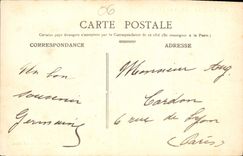 06
CARTE POSTALE
Certains pays étrangers n'acceptent pas la Correspondance de ce côté (Se renseigner à la Poste)
CORRESPONDANCE
ADRESSE
Un bon
souvenir
Germaine
Monsieur Aug.
Cardon
6 rue de Lyon
(Paris)